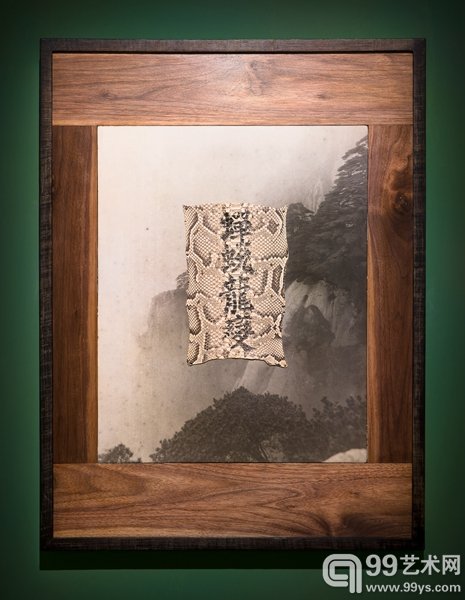 蟬蛻龍變
99艺术网
www.99ys.com